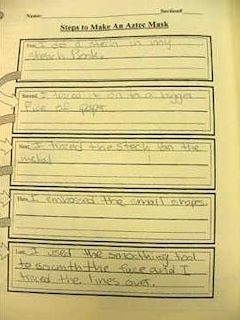 Name: Section#
Steps to Make An Aztec Mask
First, I do a stech in my
stetch Book.
Second, I traced it on to a bigger
Pice of paper
Next, I traced the stech on the
metal
Then, I embossed the small shapes.
Last, I used the smoothing tool
to smomth the face and I
traced the lines over.